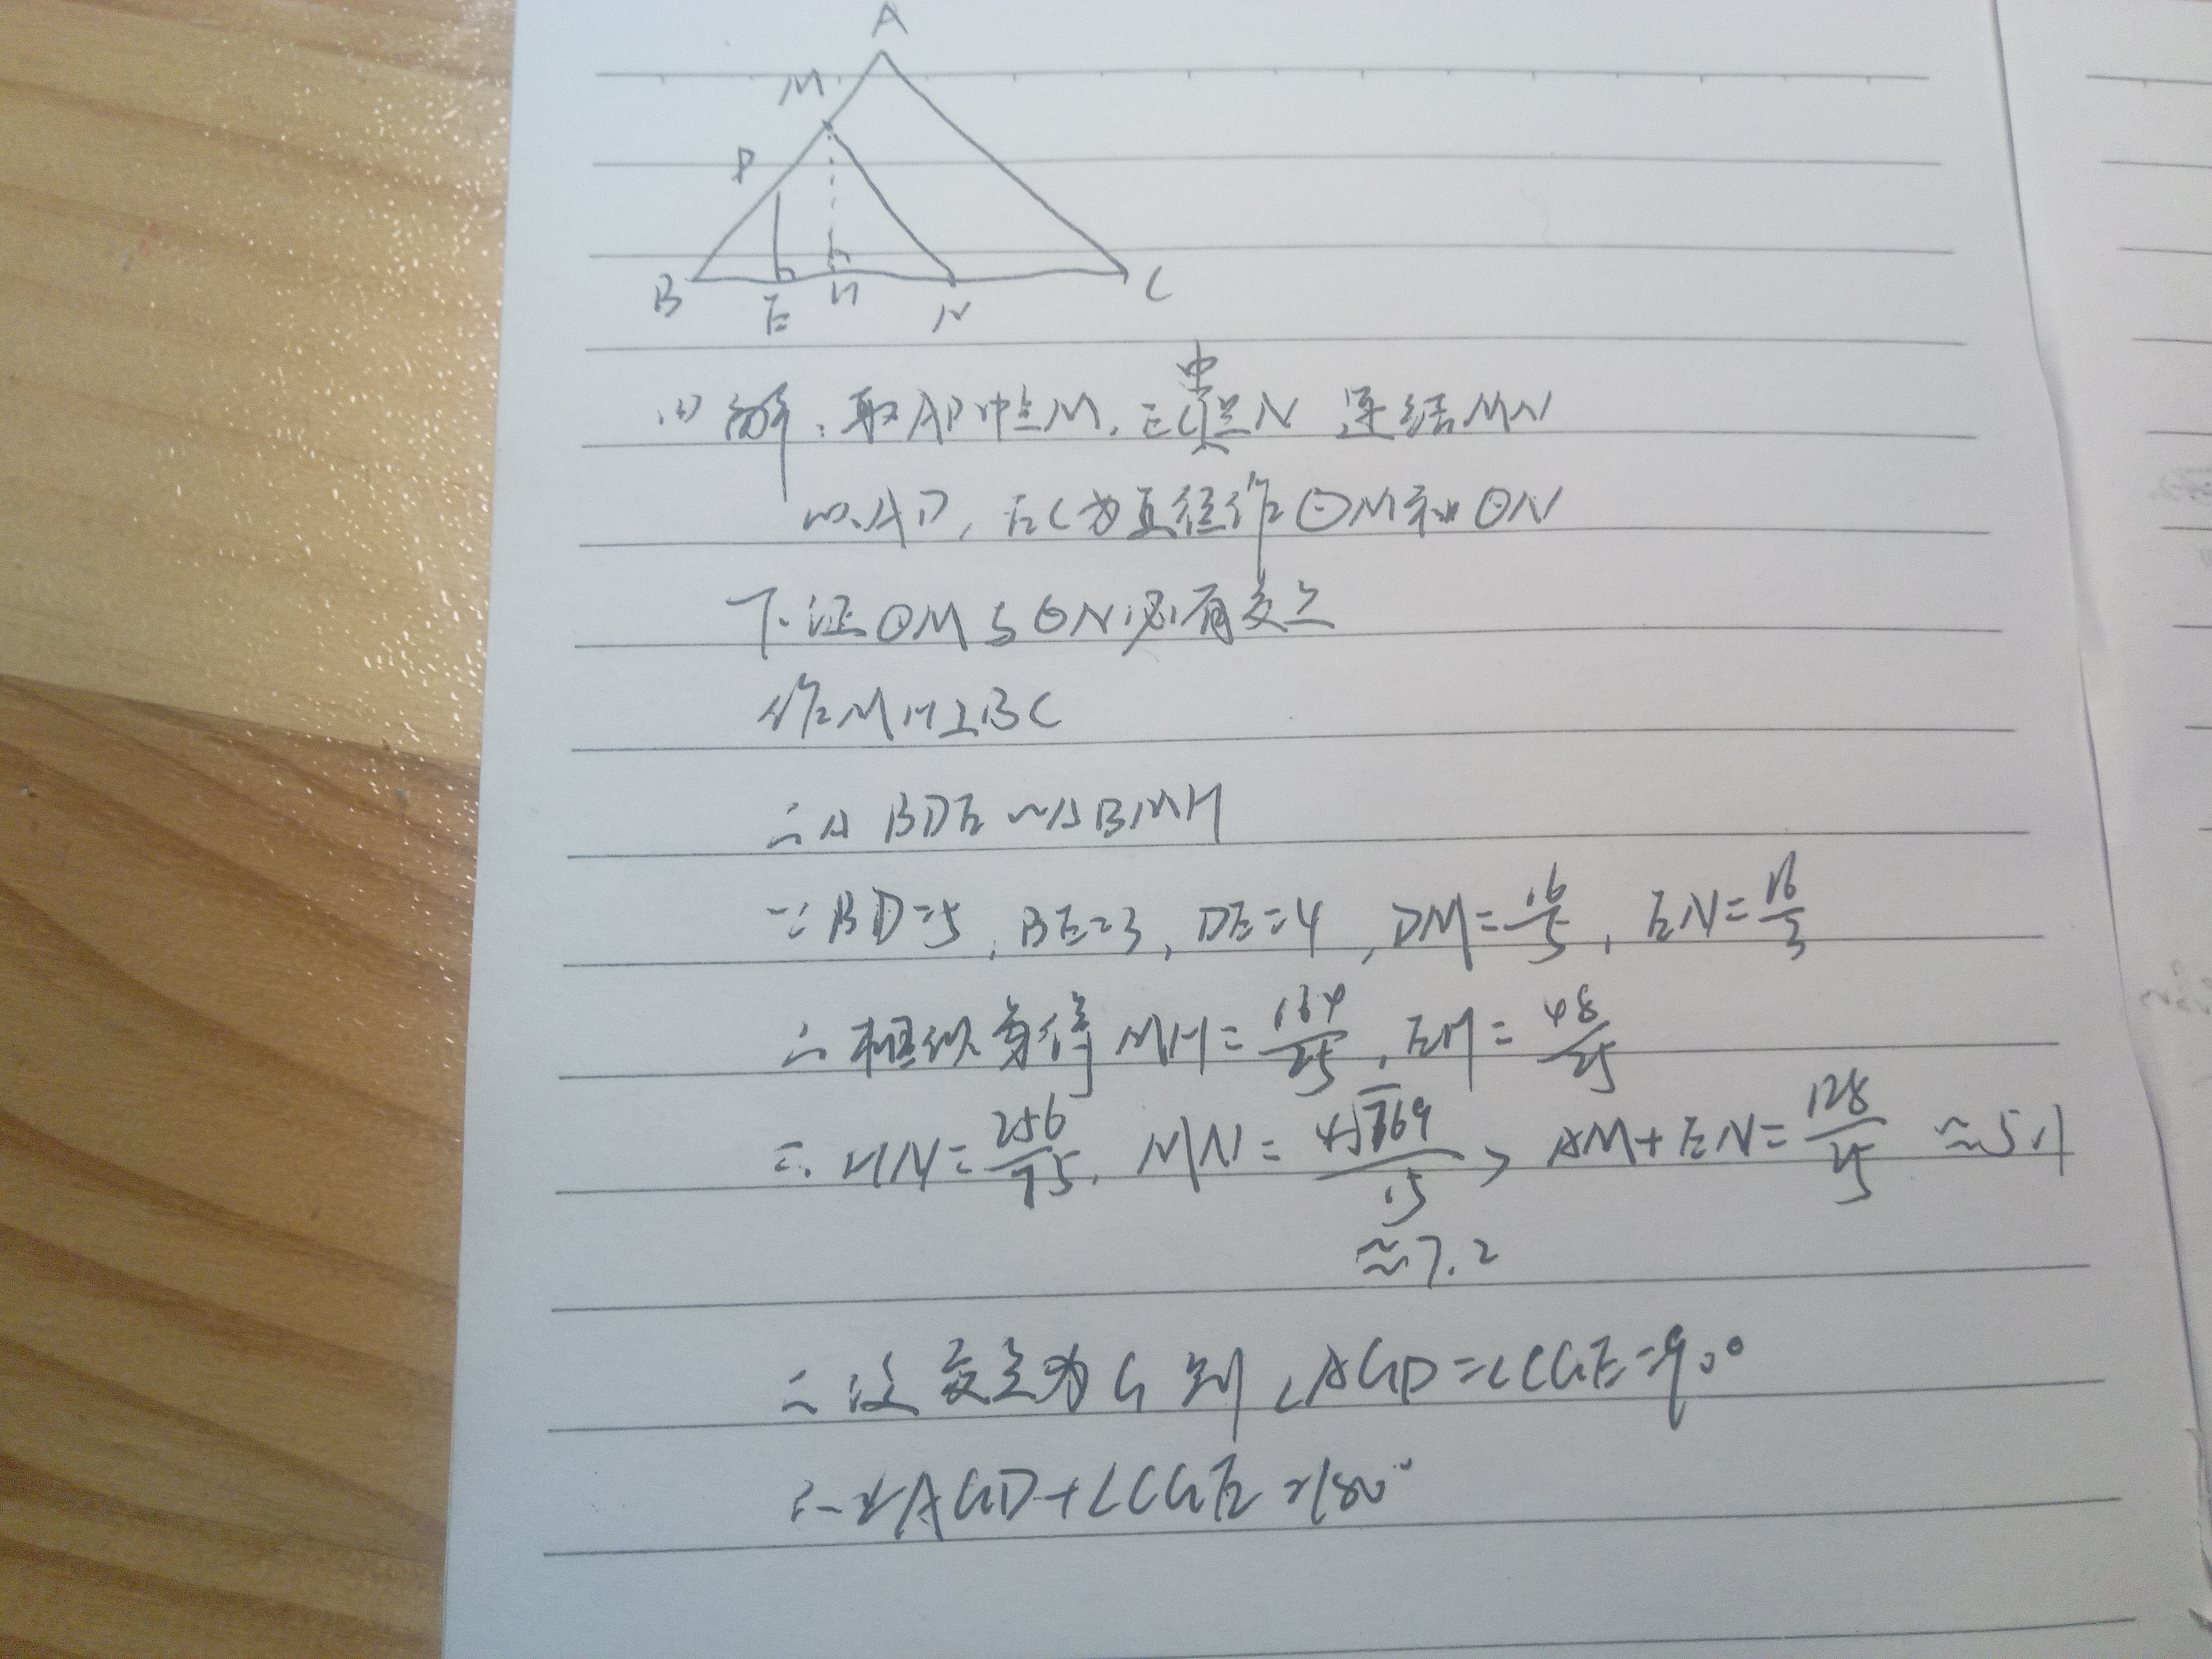 A
M
D
B E H N C
(1) 解：取AD中点M，EC中点N 连结MN
以AD，EC为直径作⊙M和⊙N
下证⊙M与⊙N必有交点
作MH⊥BC
∴△BDE∽△BMH
∵BD=5，BE=3，DE=4，DM=16/5，EN=16/3
∴相似算得MH=164/25，EH=48/25
∴HN=256/75，MN=4√769/15 > AM+EN=128/25 ≈5.1
≈7.2
∴设交点为G 则∠AGD=∠CGE=90°
∴∠AGD+∠CGE=180°